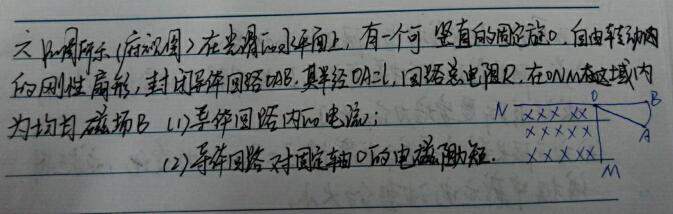 六 如图所示(俯视图)在光滑的水平面上,有一个可 竖直的固定旋O,自由转动的
的刚性扇形,封闭导体回路OAB.其半径OA=L,回路总电阻R,在ONM区域内
为均匀磁场B (1)导体回路内的电流;
(2)导体回路对固定轴O的电磁阻力矩.
N O B
××× ××
×××××
A
×××××
M